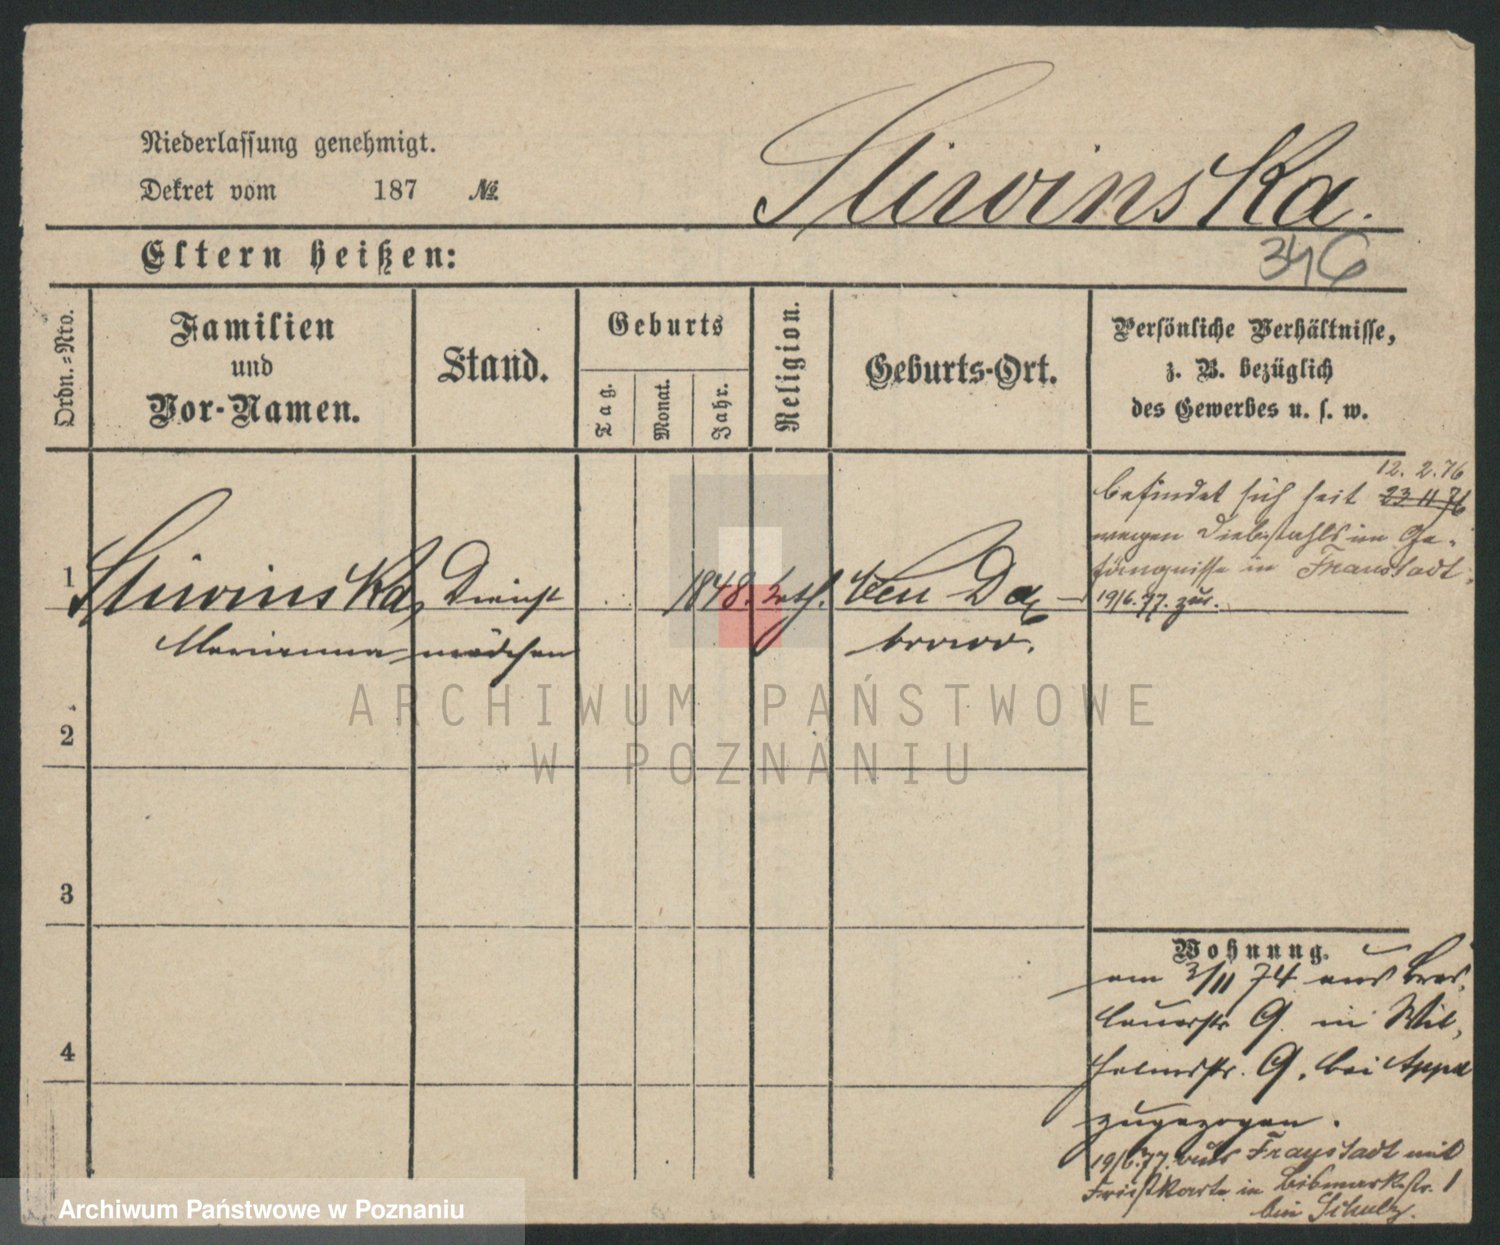 Niederlassung genehmigt.
Dekret vom 187 №.
Sliwinska.
346
Eltern heißen:
Ordn.-Nro.
Familien
und
Vor-Namen.
Stand.
Geburts
Tag.
Monat.
Jahr.
Religion.
Geburts-Ort.
Persönliche Verhältnisse,
z. B. bezüglich
des Gewerbes u. s. w.
1
Sliwinska,
Marianna
Dienst
mädchen
1848.
kath.
Neu Dą-
browo.
12. 2. 76
befindet sich seit 23 11 76
wegen Diebstahls im Ge-
fängnisse in Fraustadt.
19/6. 77. zur.
2
3
4
Wohnung.
am 3/11 74 aus Bres-
lauerstr 9. in Wil-
helmstr. 9, bei Appel
zugezogen.
19/6. 77. aus Fraustadt mit
in Bismarckstr. 1
bei Schulz.
ARCHIWUM PAŃSTWOWE
W POZNANIU
Archiwum Państwowe w Poznaniu